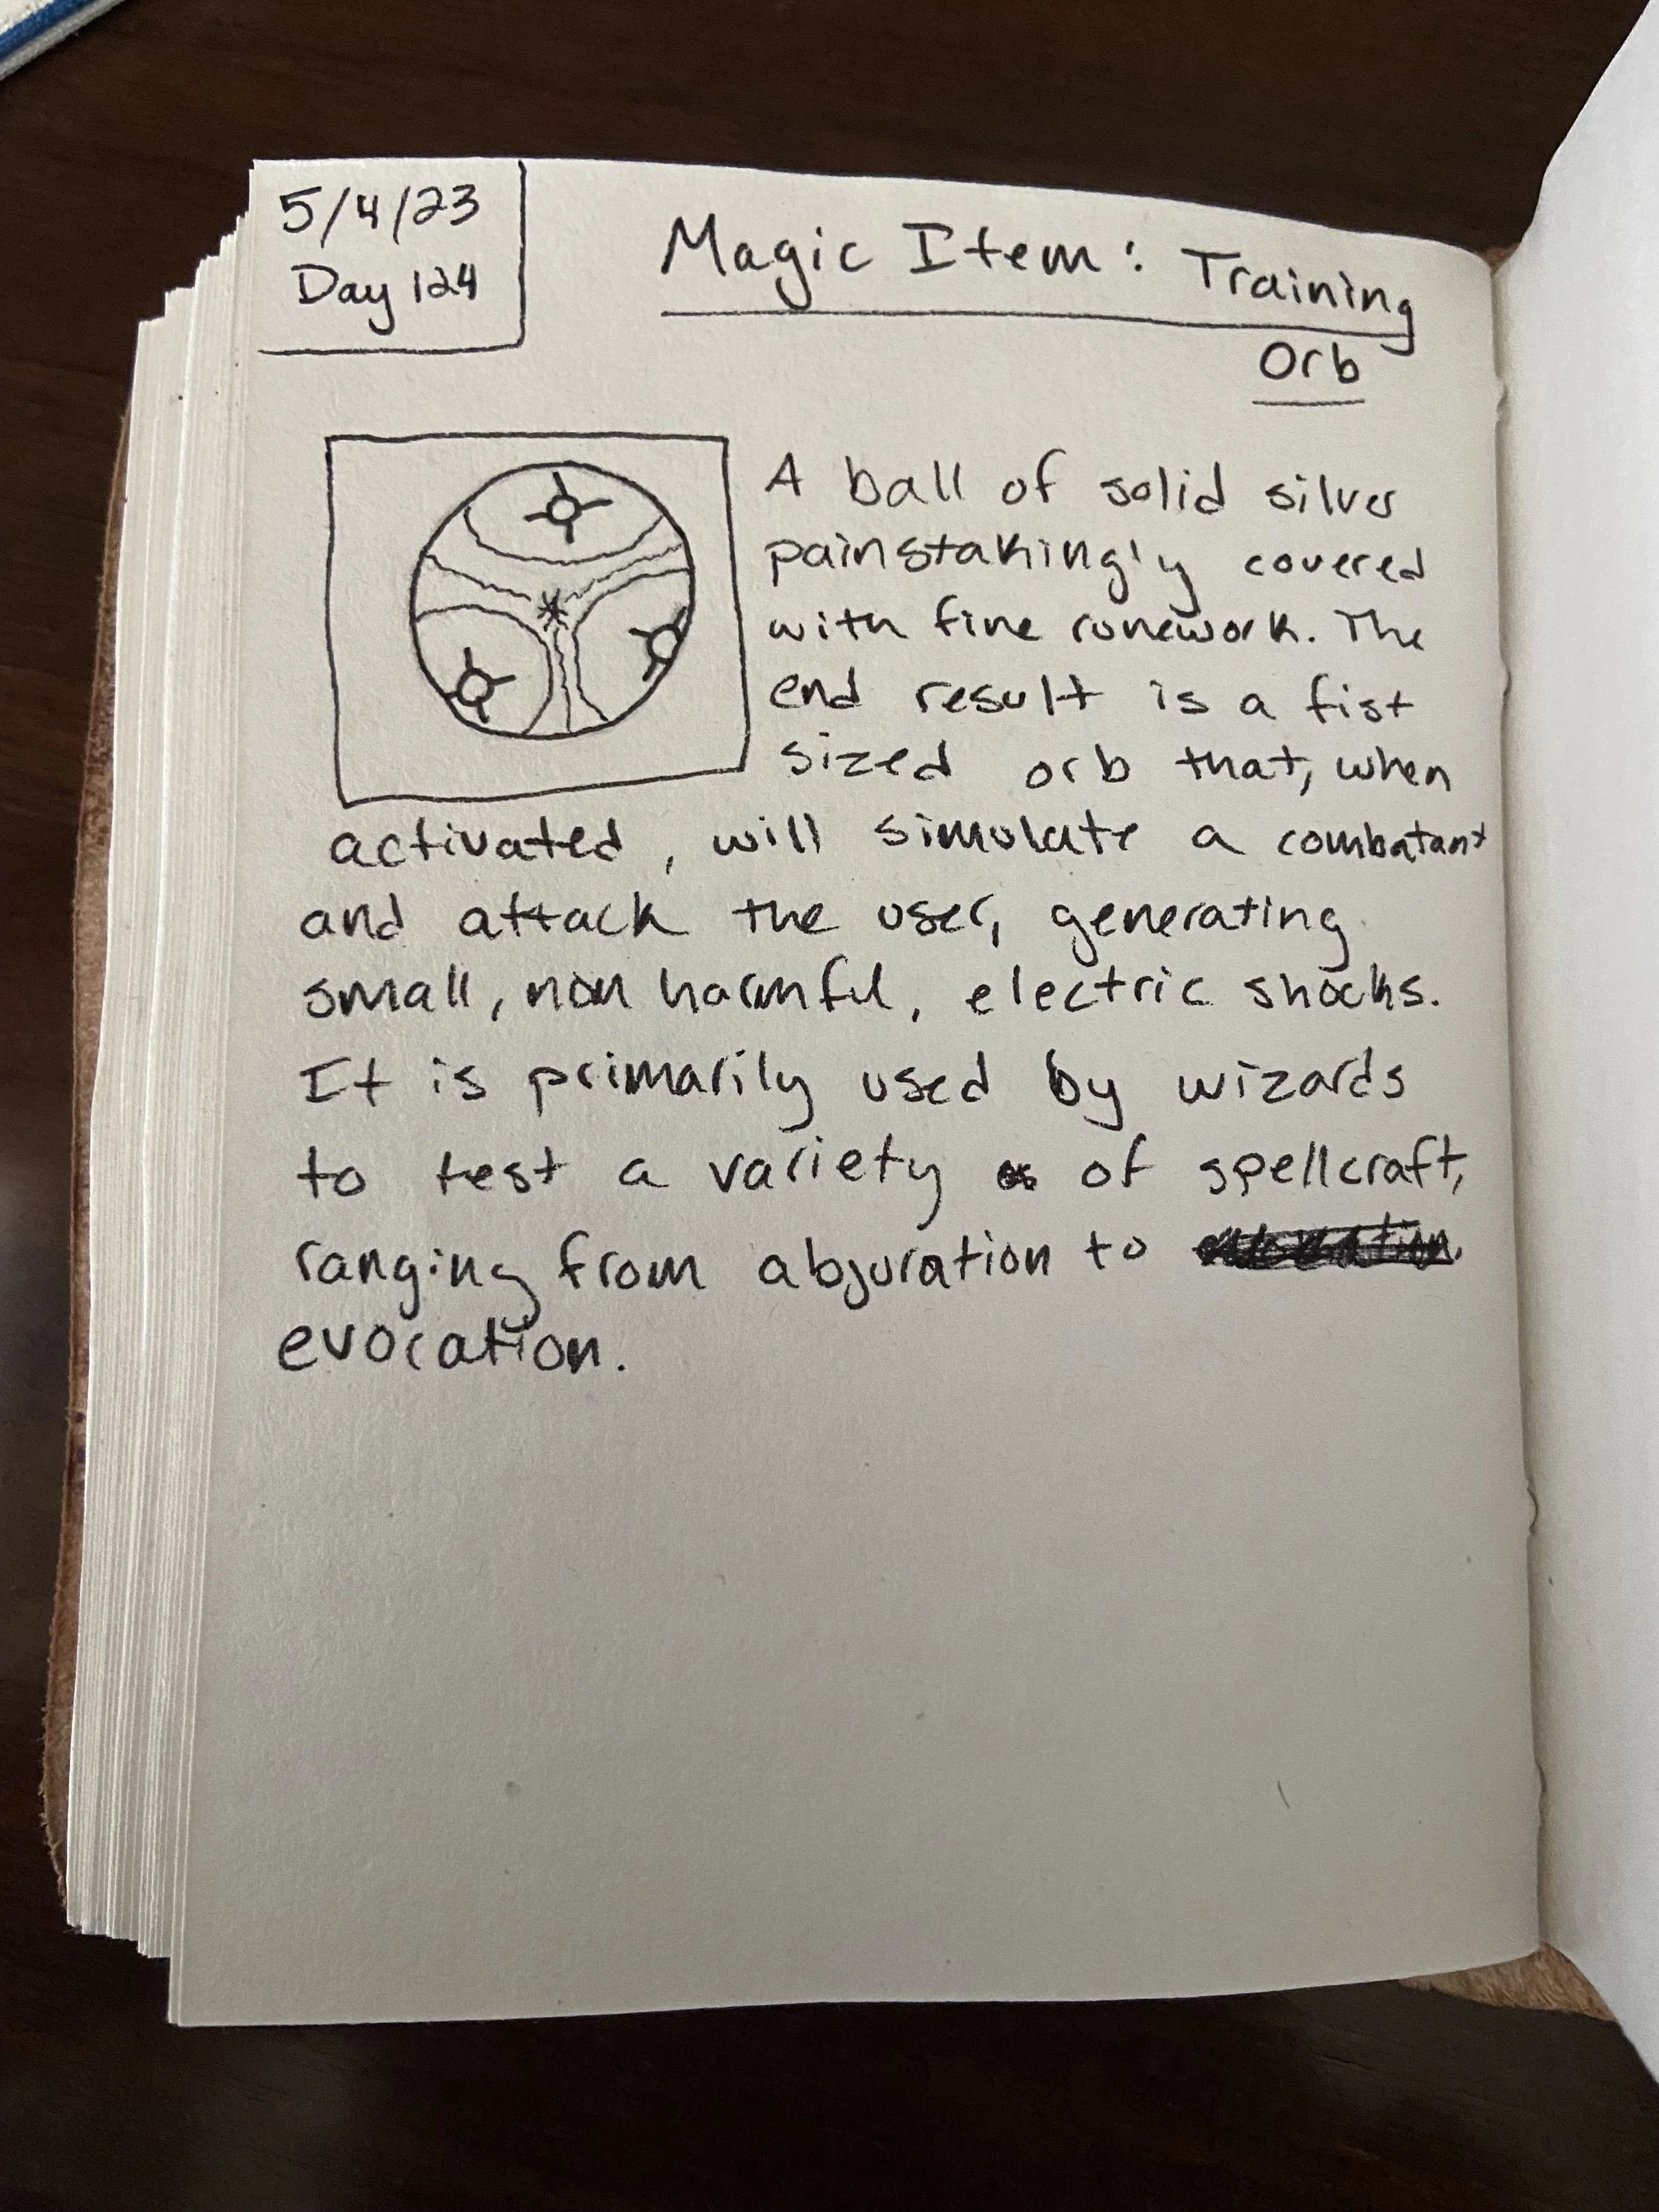 5/4/23
Day 124
Magic Item: Training
Orb
A ball of solid silver
painstakingly covered
with fine runework. The
end result is a fist
sized orb that, when
activated, will simulate a combatant
and attack the user, generating
small, non harmful, electric shocks.
It is primarily used by wizards
to test a variety of spellcraft,
ranging from abjuration to
evocation.